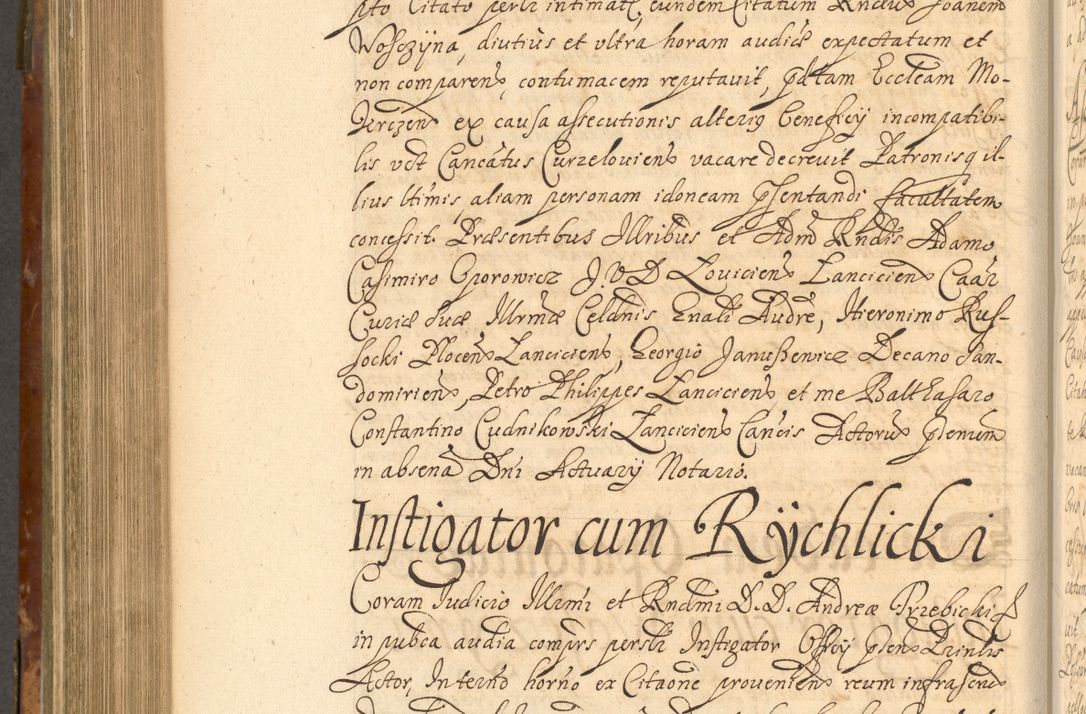 pto Citato perlr intimatt, eundem Citatum Rndum Joanem
Wosczyna, diutius et vltra horam audiæ expectatum et
non comparenẽ, contumacem reputauit, pdtam Eccleam Mo-
krczenẽ ex causa assecutionis alterig beneffcij incompatibi-
lis vct Cancatus Curzelouiens vacare decreuit Patronisq il-
lius ltimis, aliam personam idoneam pſentandi facultatem
concessit. Præsentibus Illribus et Adm Rndis Adamo
Casimiro Oporowicz J.V.D Louiciens Lanciciens Caar
Curiæ suæ Illrmæ Celdnis Gnali Audre, Hieronimo Rus-
socki Plocens Lanciciens, Georgio Janußewicz Decano San-
domiriens, Petro Philippes Lanciciens et me Balthasaro
Constantino Cudnikowski Lanciciens Cancis Actorus pſenium
in absena Dni Actuarij Notario.
Instigator cum Rÿchlicki
Coram Judicio Illrmi et Rndmi D.D. Andreæ Trzebicki
in pubca audia comprs perslr Instigator Offcij pſens Prinlis
Actor, In termo horno ex Citaone proueniens reum infrascrus